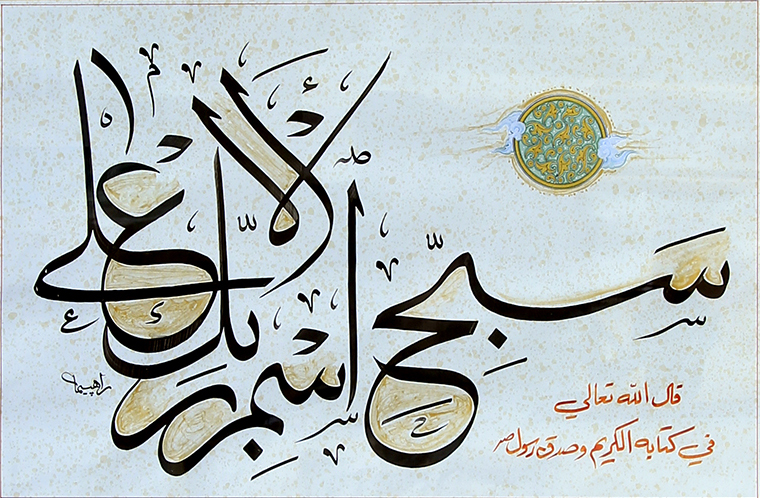 سَبِّحِ اسْمَ رَبِّكَ الْأَعْلَى
قال الله تعالی
في كتابه الكريم وصدق رسول ص
راهپیما